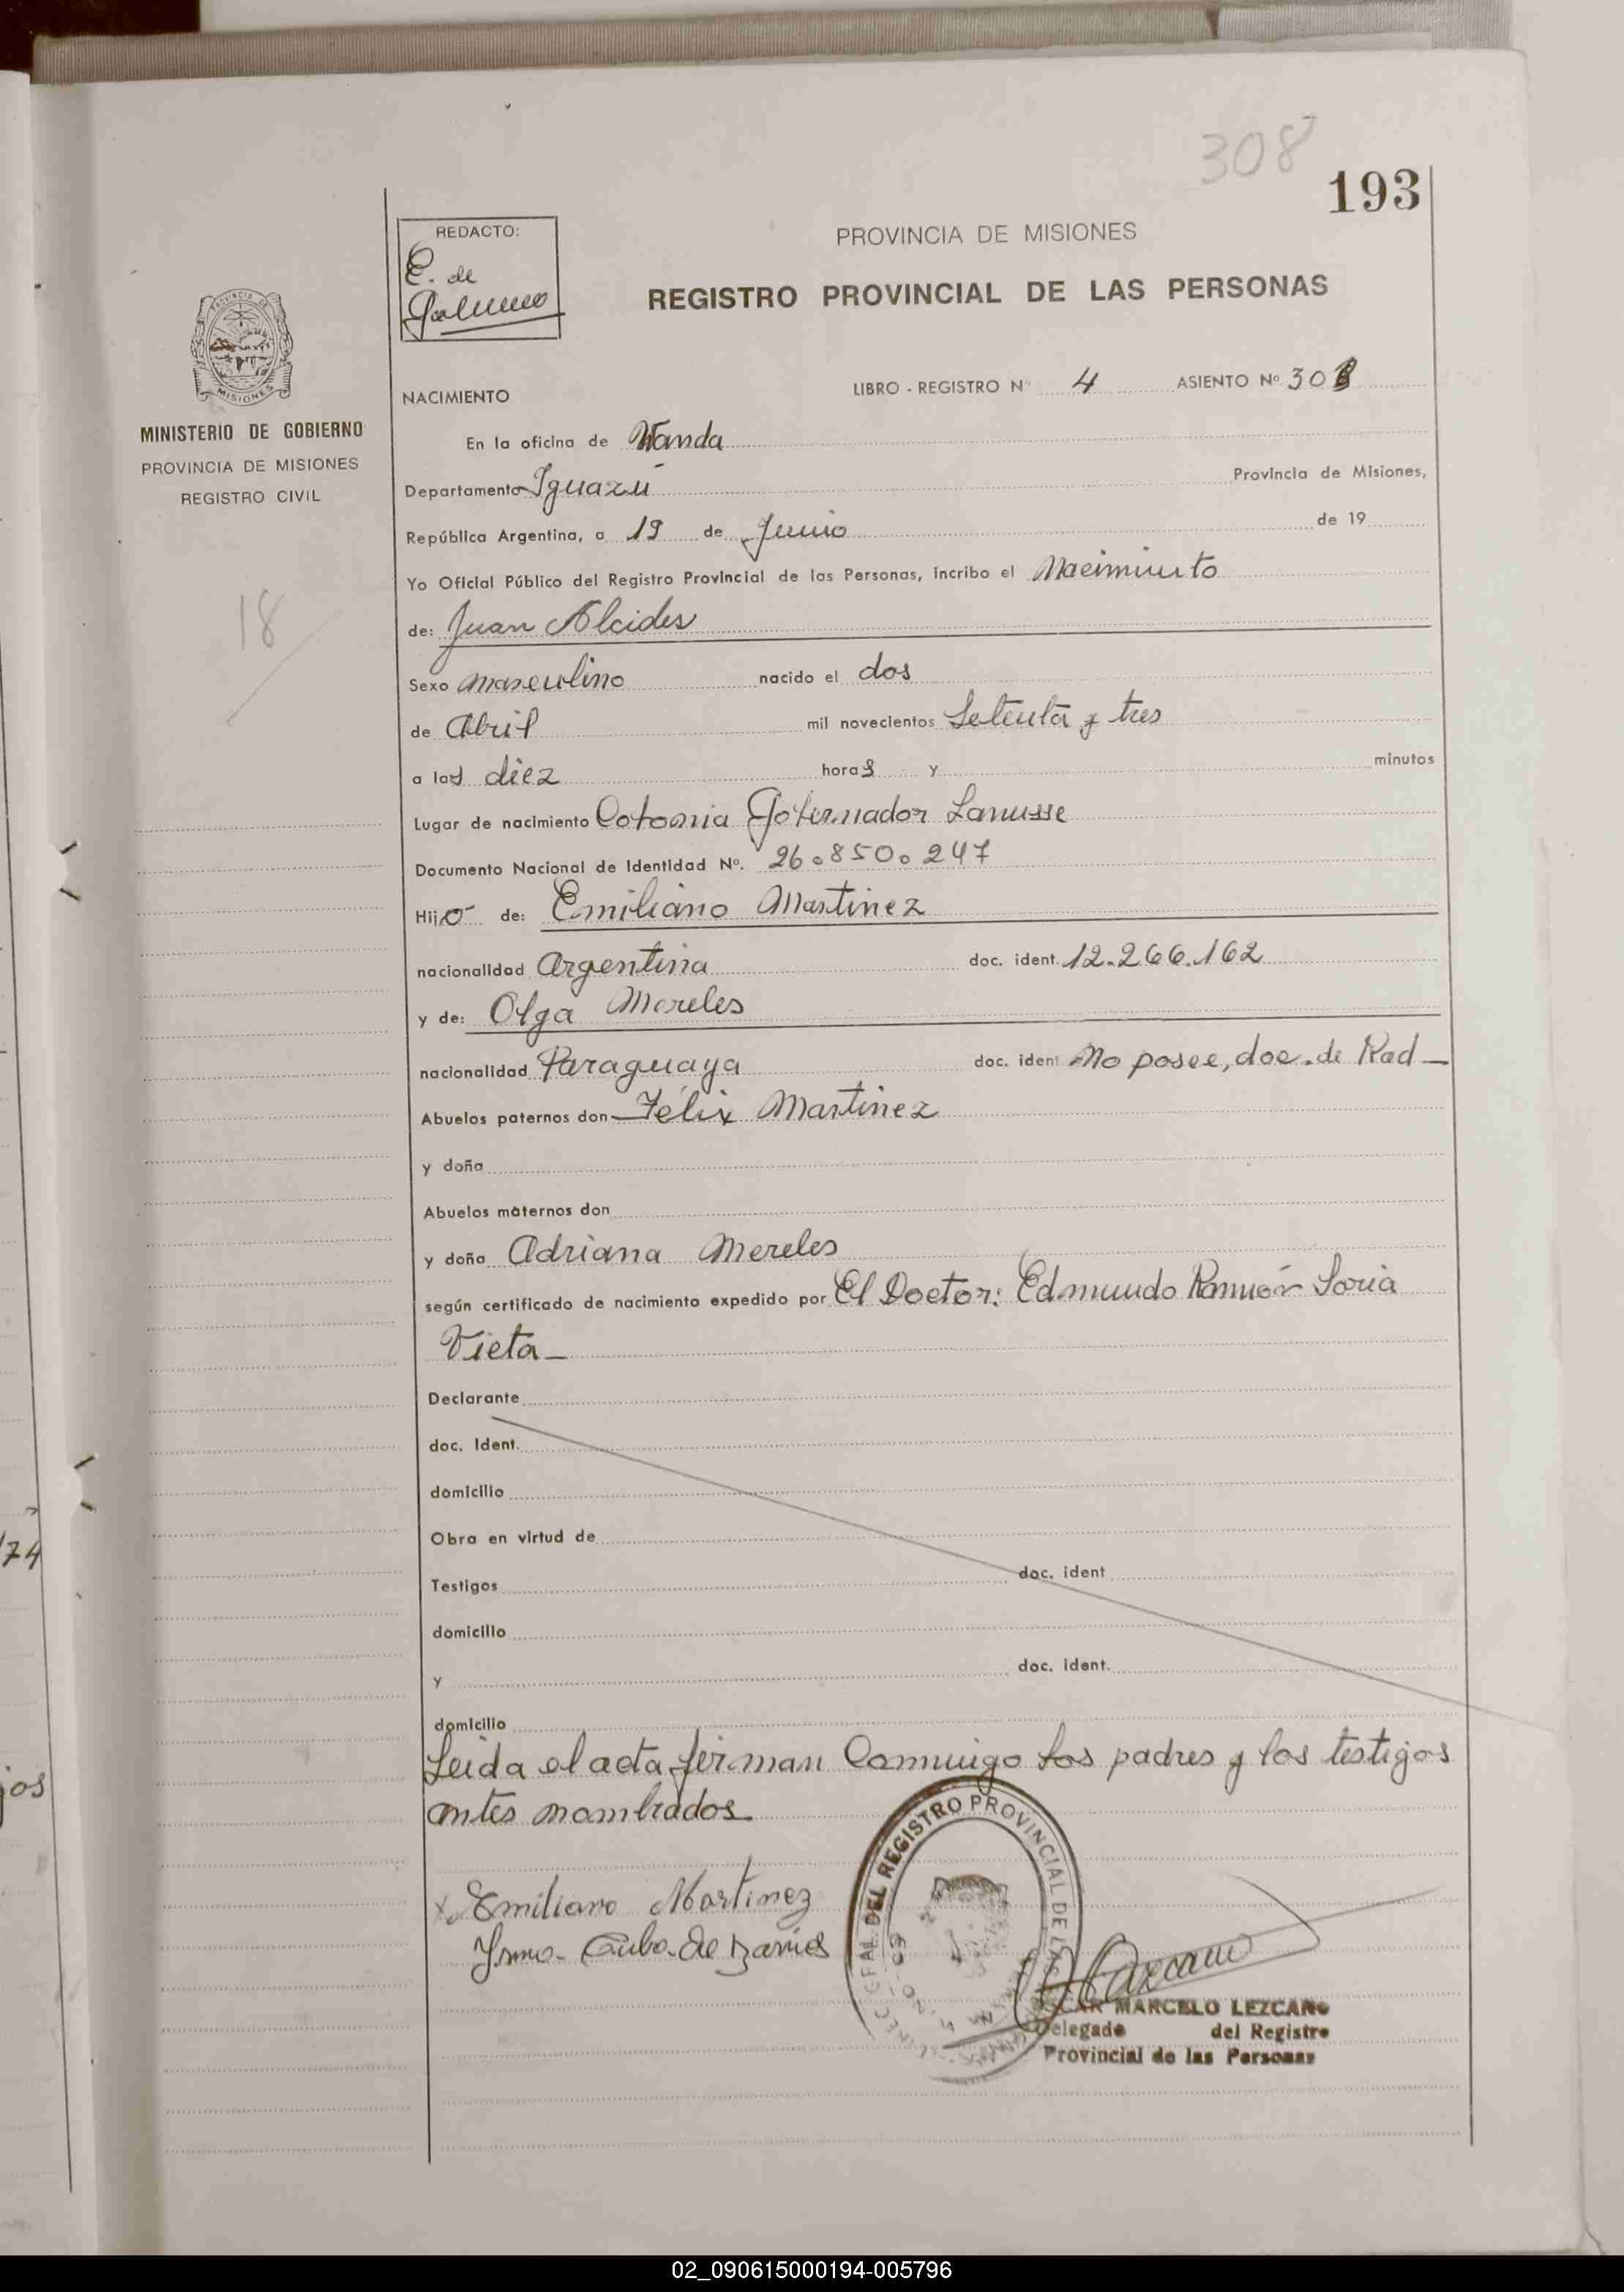 308
193
REDACTO:
E. de
PROVINCIA DE MISIONES
REGISTRO PROVINCIAL DE LAS PERSONAS
MINISTERIO DE GOBIERNO
PROVINCIA DE MISIONES
REGISTRO CIVIL
18
NACIMIENTO
LIBRO - REGISTRO Nº 4 ASIENTO Nº 308
En la oficina de Wanda
Departamento Iguazú Provincia de Misiones,
República Argentina, a 19 de Junio de 19
Yo Oficial Público del Registro Provincial de las Personas, incribo el Nacimiento
de: Juan Alcides
Sexo masculino nacido el dos
de Abril mil novecientos Setenta y tres
a las diez horas y minutos
Lugar de nacimiento Colonia Gobernador Lanusse
Documento Nacional de Identidad Nº. 26.850.247
Hijo de: Emiliano Martinez
nacionalidad Argentina doc. ident. 12.266.162
y de: Olga Mereles
nacionalidad Paraguaya doc. ident No posee, doc. de Rad_
Abuelos paternos don Félix Martinez
y doña
Abuelos maternos don
y doña Adriana Mereles
según certificado de nacimiento expedido por El Doctor: Edmundo Ramón Soria
Vieta_
Declarante
doc. Ident.
domicilio
Obra en virtud de
Testigos doc. ident
domicilio
y doc. ident.
domicilio
Leida el acta firman Conmigo los padres y los testigos
antes nombrados
x Emiliano Martinez
DEL REGISTRO PROVINCIAL DE LAS
OSCAR MARCELO LEZCANO
Delegado del Registro
Provincial de las Personas
/74
jos
02_090615000194-005796